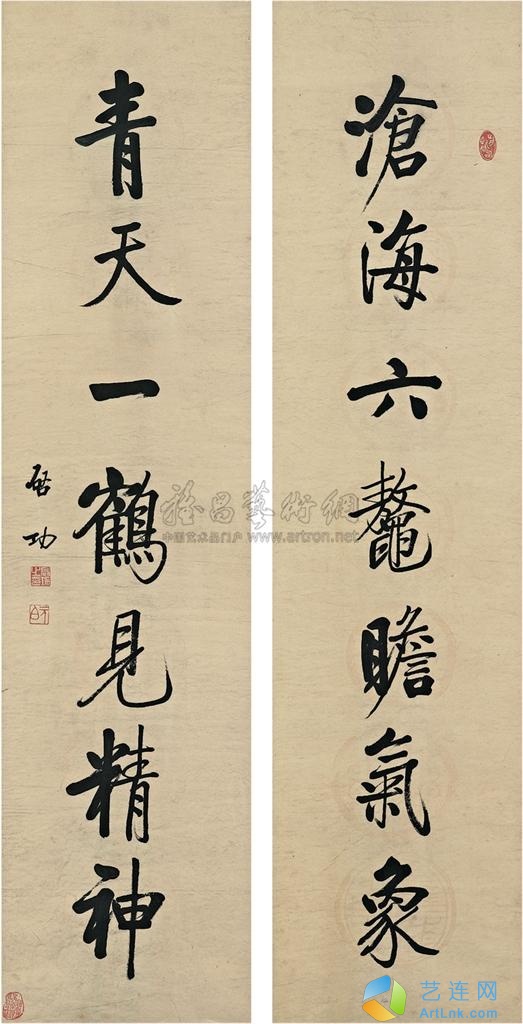 滄海六鼇瞻氣象
青天一鶴見精神
啓功
雅昌藝術網
中国艺术品门户 www.artron.net
艺连网
ArtLnk.Com